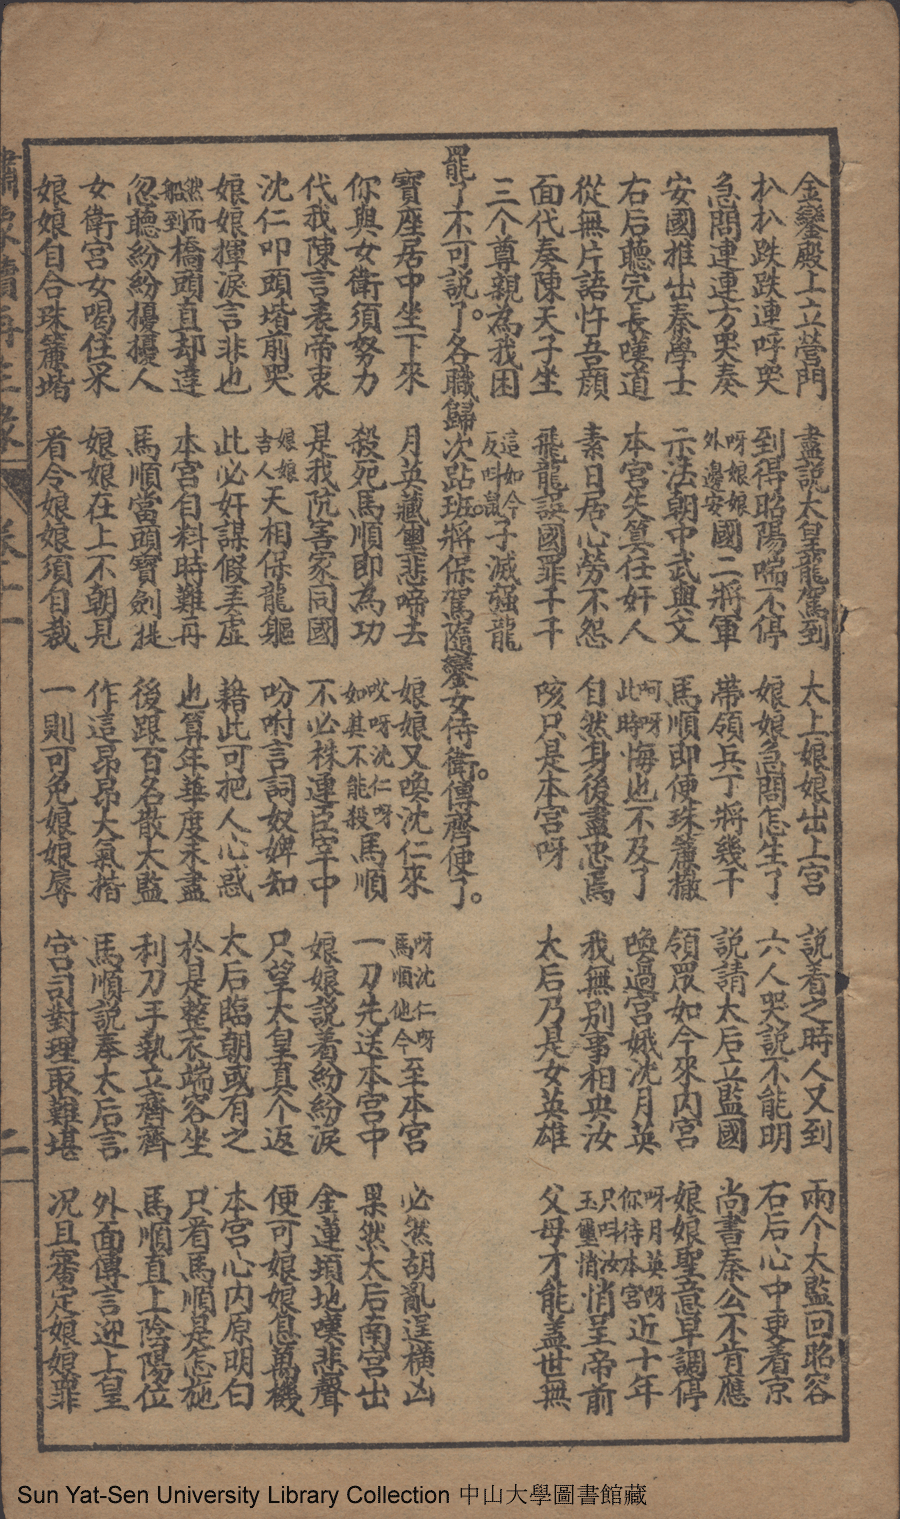 金鑾殿上立營門　盡說太皇龍駕到　太上娘娘出上宮　說着之時人又到　兩个太監回昭容
扒扒跌跌連呼哭　到得昭陽喘不停　娘娘急問怎生了　六人哭說不能明　右后心中更着京
急問連連方哭奏　呀娘娘外邊安國二將軍　帶領兵丁將幾千　說請太后立監國　尚書秦公不肯應
安國推出秦學士　示法朝中武與文　馬順即便珠簾撤　領眾如今來內宮　娘娘聖意早調停
右后聽完長嘆道　本宮失算任奸人　呵呀此時悔也不及了　喚過宮娥沈月英　呀月英呀你待本宮近十年
從無片語忤吾顏　素日居心勞不怨　自然身後盡忠馬　我無別事相央汝　只叫汝玉璽悄悄呈帝前
面代奏陳天子坐　飛龍誤國罪千千　咳只是本宮呀　太后乃是女英雄　父母才能蓋世無
三个尊親為我困　這如今反叫子滅强龍
罷了不可說了。各職歸次跕班將保駕隨鑾女侍衛。傳齊便了。
寶座居中坐下來　月英藏璽悲啼去　娘娘又喚沈仁來　呀沈仁呀馬順他今至本宮　必然胡亂逞橫凶
你與女衛須努力　殺死馬順即為功　哎呀沈仁呀如其不能殺馬順　一刀先送本宮中　果然太后南宮出
代我陳言表帝衷　是我阬害家同國　不必株連臣宰中　娘娘說着紛紛淚　金蓮頓地嘆悲聲
沈仁叩頭堦前哭　娘娘吉人天相保龍軀　吩咐言詞奴婢知　只望太皇真个返　便可娘娘息萬機
娘娘揮淚言非也　此必奸謀假弄虛　藉此可把人心惑　太后臨朝或有之　本宮心內原明白
然而船到橋頭直却違　本宮自料時難再　也算年華度未盡　於是整衣端容坐　只看馬順是怎施
忽聽紛紛擾擾人　馬順當頭寶劍提　後跟百名散太監　利刀手執立齊齊　馬順直上陰陽位
女衛宮女喝住釆　娘娘在上不朝見　作這昂昂大氣揩　馬順說奉太后言　外面傳言迎上皇
娘娘自合珠簾堦　看令娘娘須自裁　一則可免娘娘辱　宮司對理取難堪　况且審定娘娘罪
繡像續再生緣　卷十一　二
Sun Yat-Sen University Library Collection 中山大學圖書館藏